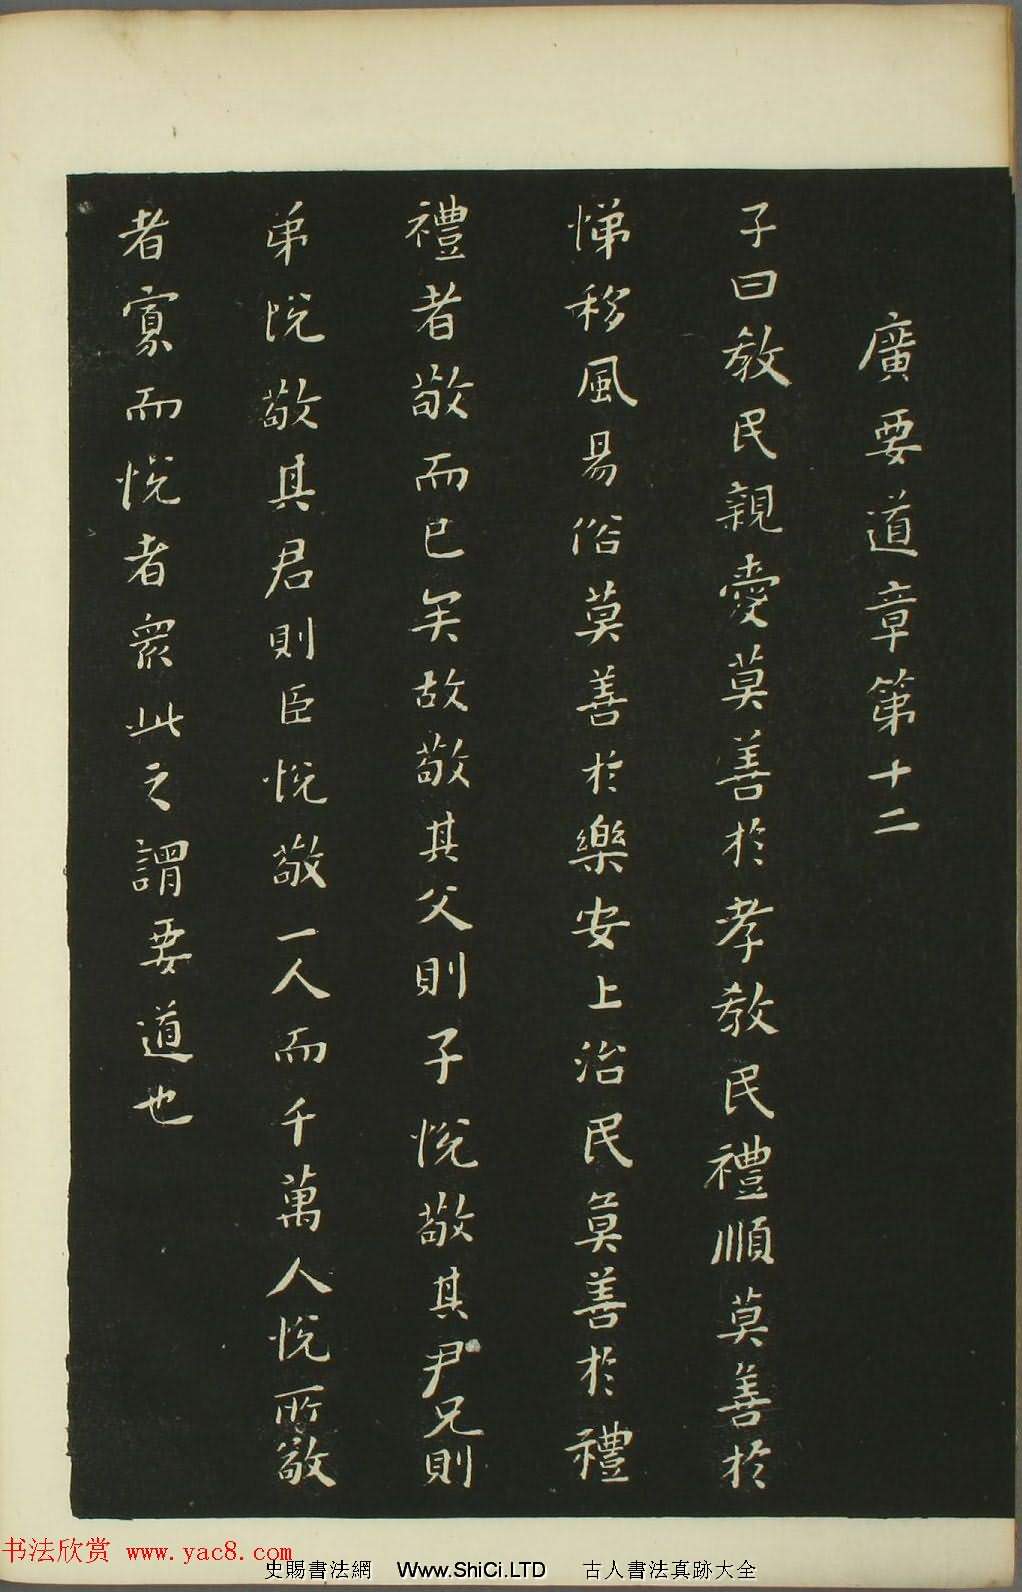 廣要道章第十二
子曰教民親愛莫善於孝教民禮順莫善於
悌移風易俗莫善於樂安上治民莫善於禮
禮者敬而已矣故敬其父則子悅敬其尹兄則
弟悅敬其君則臣悅敬一人而千萬人悅所敬
者寡而悅者衆此之謂要道也
书法欣赏 www.yac8.com
史賜書法網 Www.ShiCi.LTD 古人書法真跡大全